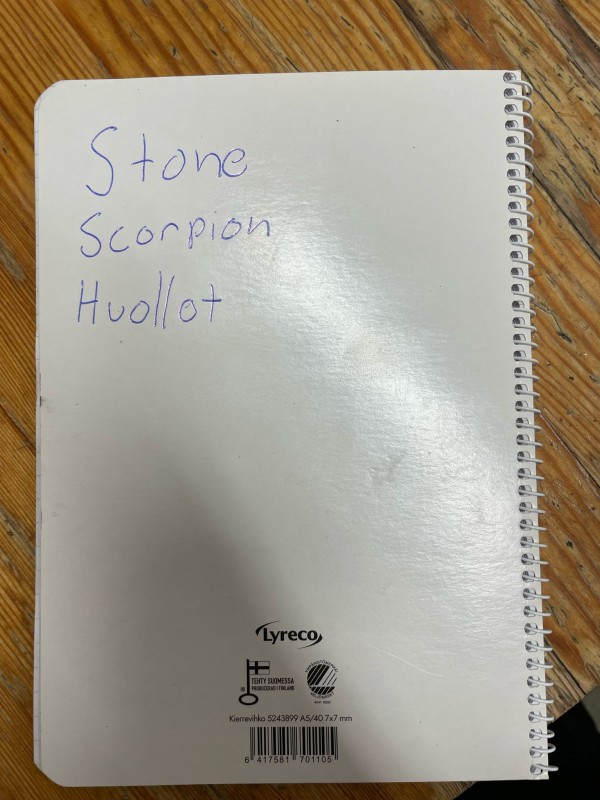 Stone
Scorpion
Huollot
Lyreco
TEHTY SUOMESSA
PRODUCERAD I FINLAND
Kierrevihko 5243899 A5/40 7x7 mm
6 417581 701105